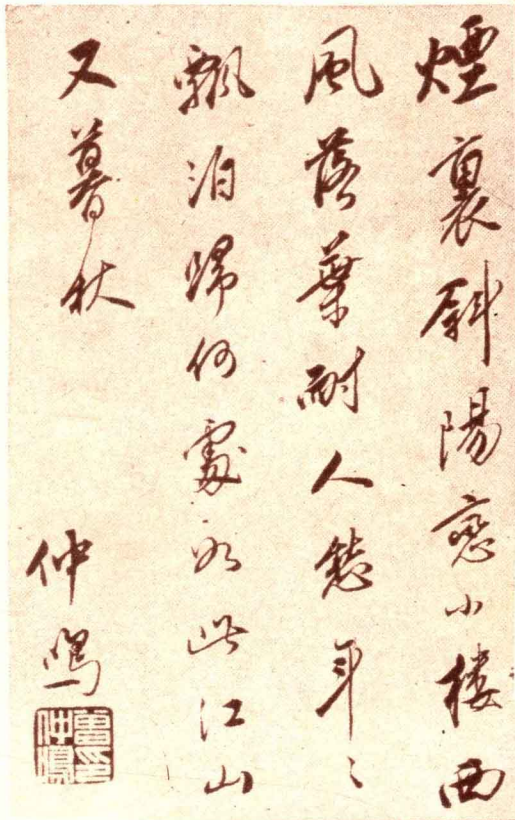 煙裏斜陽戀小樓西
風落葉耐人愁年〻
飄泊歸何處如此江山
又暮秋
仲鳴
曾印
仲鳴